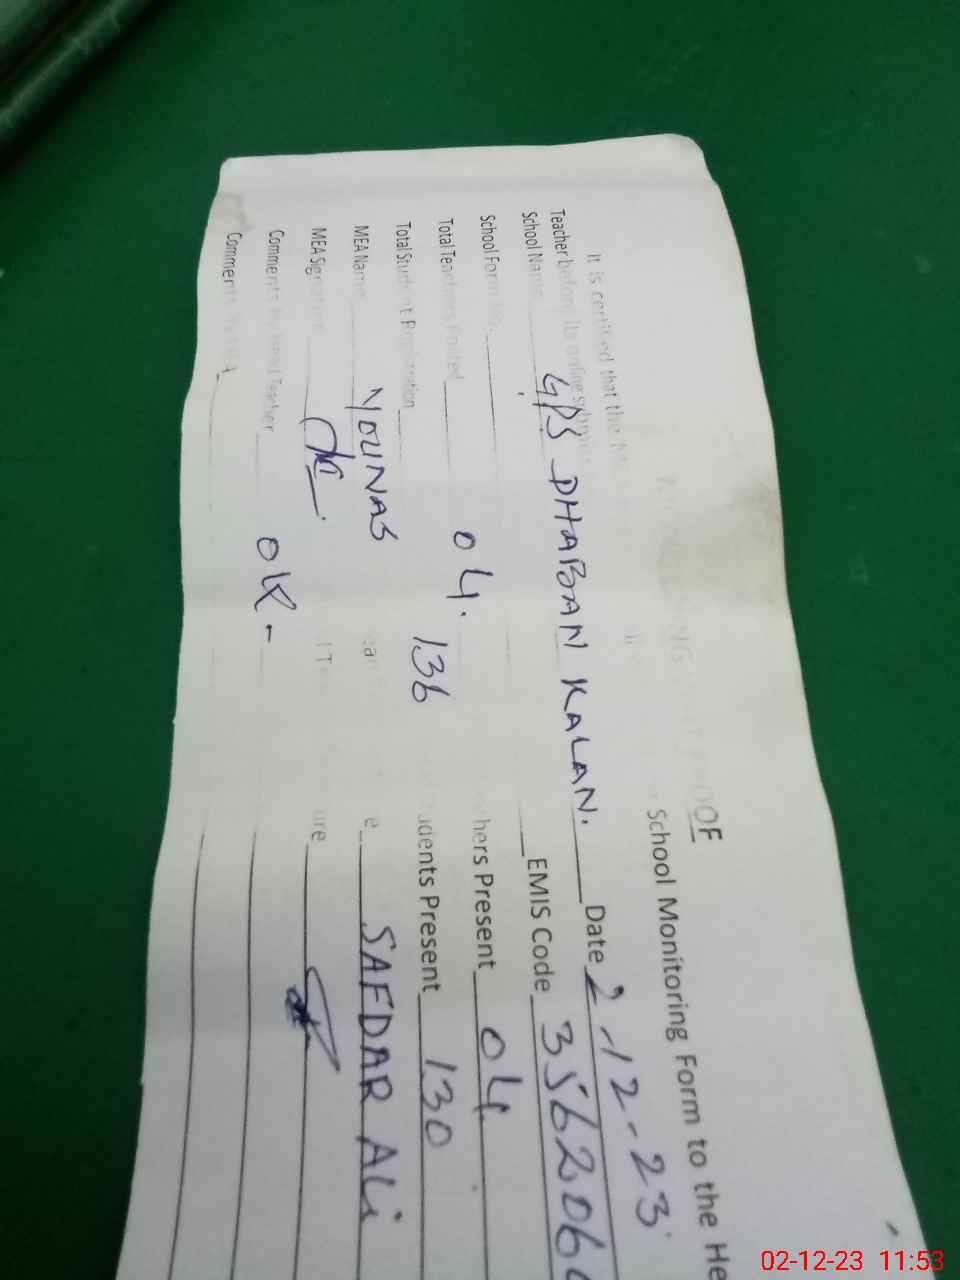 OF
It is certified that the School Monitoring Form to the He
Teacher before its online
School Name GPS DHABAN KALAN. Date 2-12-23
School Form EMIS Code 356206
Total Teachers 04. hers Present 04
Total Student Registration 136 udents Present 130
MEA Name YOUNAS e SAFDAR ALi
MEA Signature ure
Comments by Head Teacher OK-
Comments
02-12-23 11:53